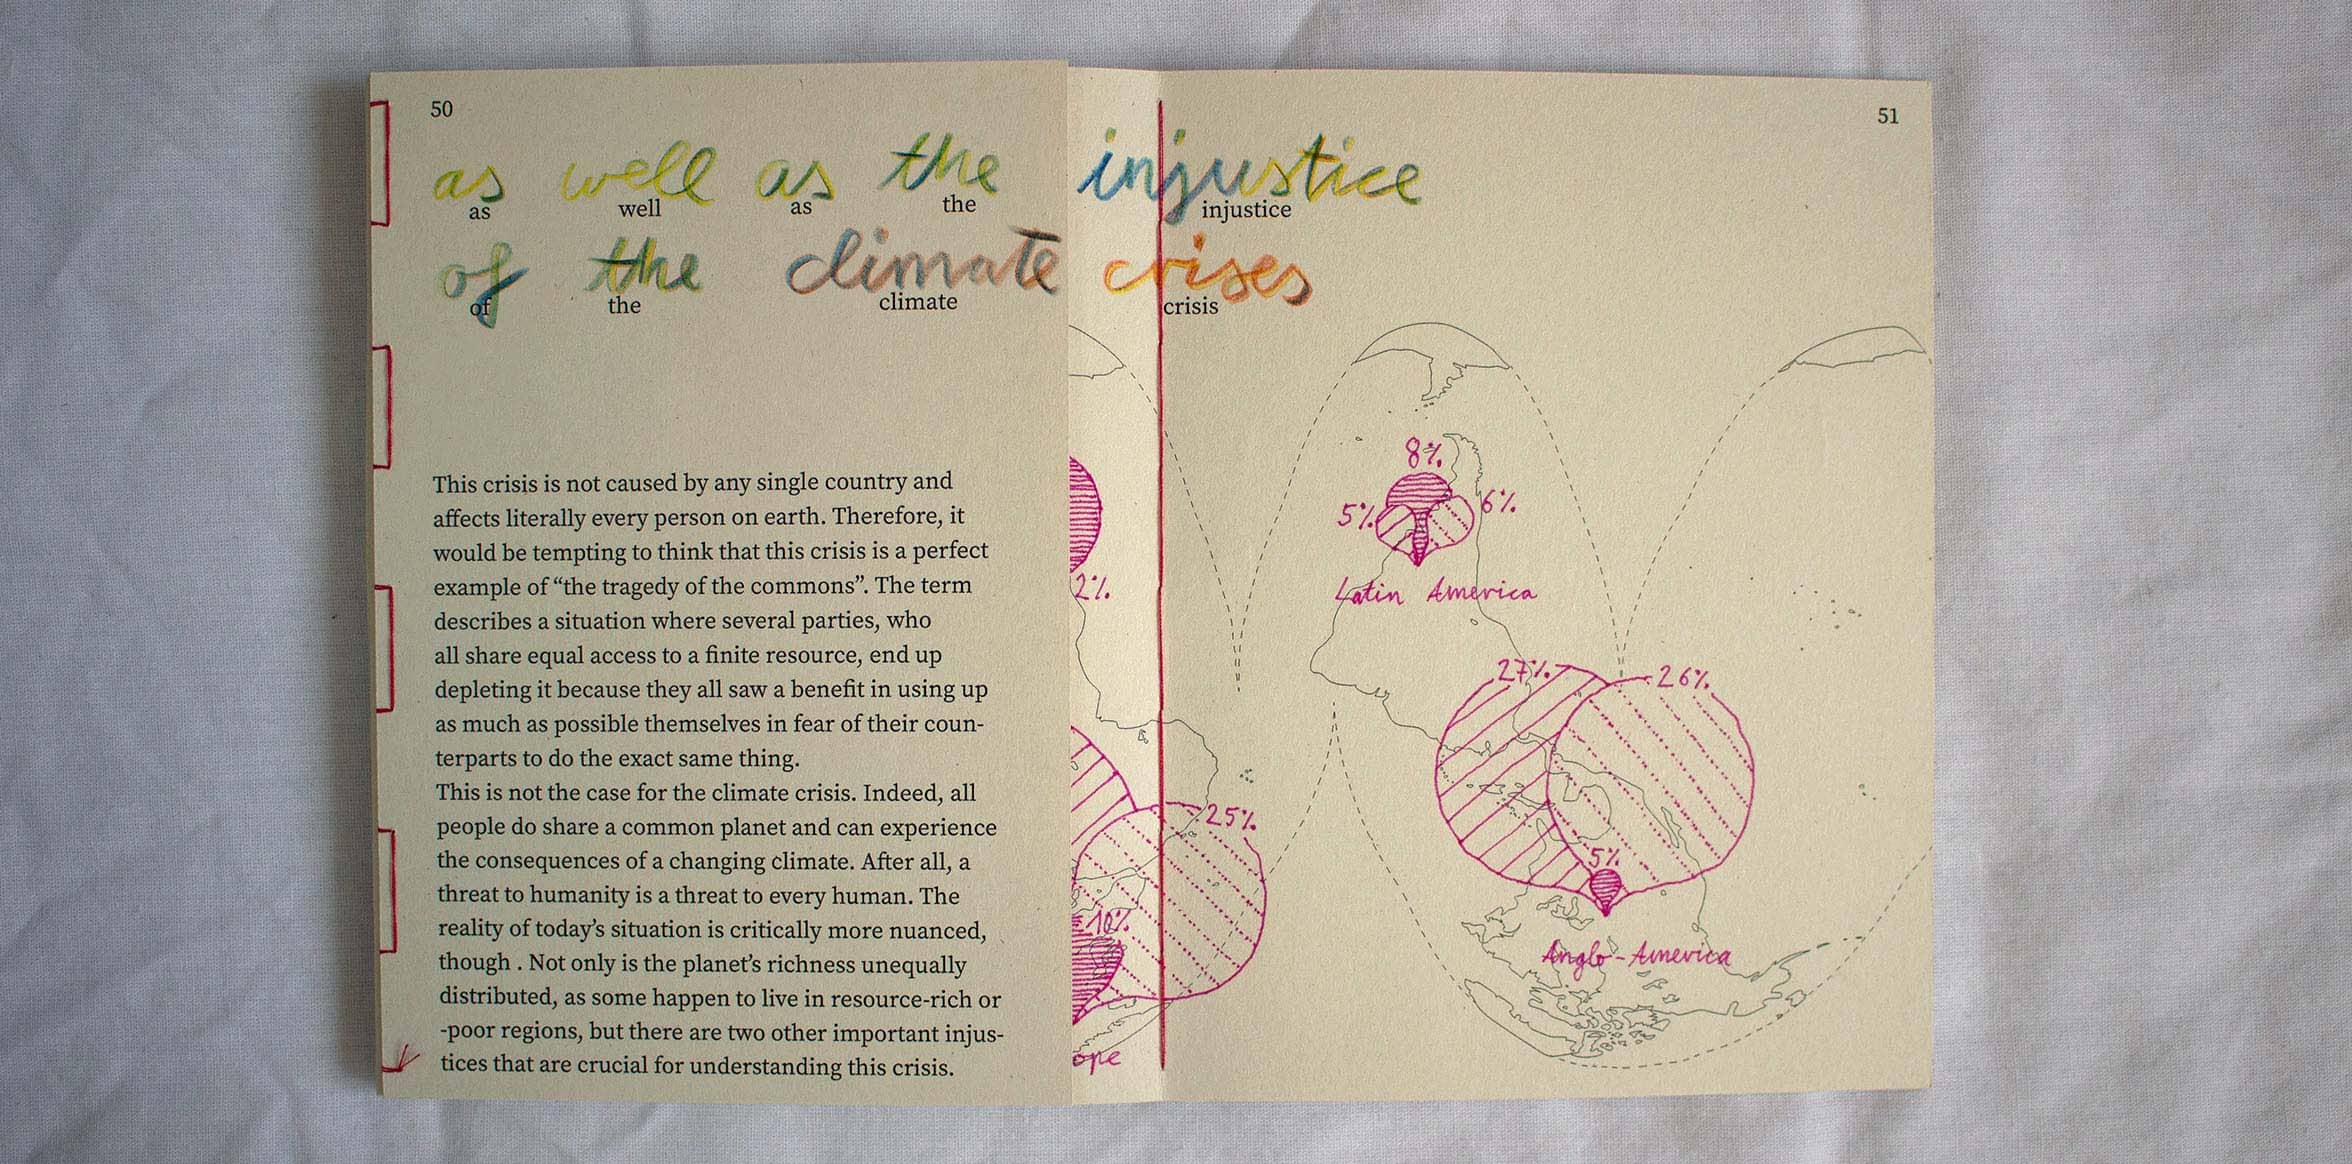 50
as well as the injustice
as well as the injustice
of the climate crises
of the climate crisis
This crisis is not caused by any single country and
affects literally every person on earth. Therefore, it
would be tempting to think that this crisis is a perfect
example of “the tragedy of the commons”. The term
describes a situation where several parties, who
all share equal access to a finite resource, end up
depleting it because they all saw a benefit in using up
as much as possible themselves in fear of their coun-
terparts to do the exact same thing.
This is not the case for the climate crisis. Indeed, all
people do share a common planet and can experience
the consequences of a changing climate. After all, a
threat to humanity is a threat to every human. The
reality of today’s situation is critically more nuanced,
though . Not only is the planet’s richness unequally
distributed, as some happen to live in resource-rich or
-poor regions, but there are two other important injus-
tices that are crucial for understanding this crisis.
51
8%
5% 6%
Latin America
2%
27% 26%
25%
5%
10%
Anglo-America
ope